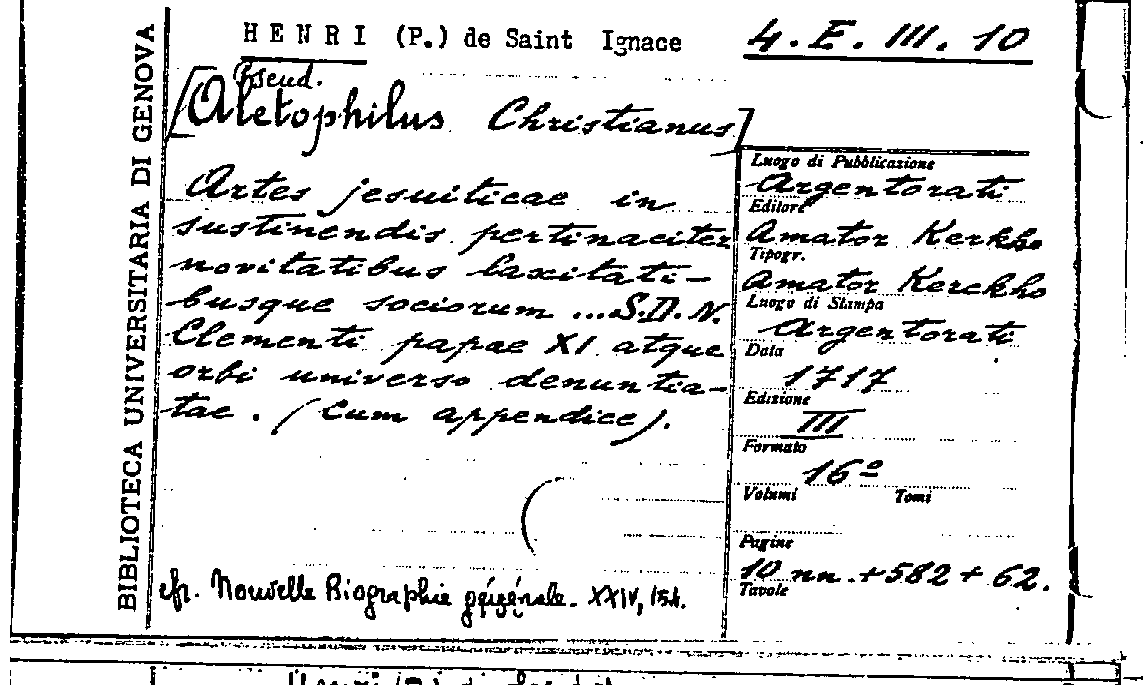 BIBLIOTECA UNIVERSITARIA DI GENOVA
HENRI (P.) de Saint Ignace
4. E. III. 10
Pseud.
[Aletophilus Christianus]
Artes jesuiticae in
sustinendis pertinaciter
novitatibus laxitati-
busque sociorum ... S.D.N.
Clementi papae XI atque
orbi universo denuntia-
tae. (Cum appendice).
cfr. Nouvelle Biographie générale. XXIV, 154.
Luogo di Pubblicazione
Argentorati
Editore
Amator Kerkho
Tipogr.
Amator Kerckho
Luogo di Stampa
Argentorati
Data
1717
Edizione
III
Formato
16º
Volumi Tomi
Pagine
10 nn. + 582 + 62.
Tavole